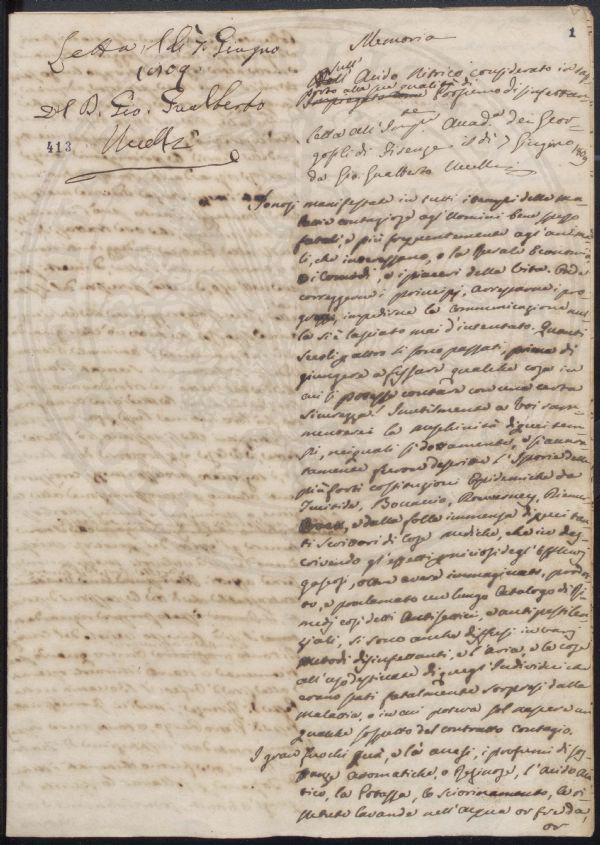 Letta il dì 7. Giugno
1809
Del D. Gio. Gualberto
Uccelli
413
1
Memoria
Sull'
Acido Nitrico considerato in rap-
porto alla sua qualità di
Profumo disinfettan-
Letta all' Accad.a dei Geor-
gofili di Firenze il dì 7 Giugno 1809
da Gio. Gualberto Uccelli
Sonosi manifestate in tutti i tempi delle ma-
lattie contagiose agl'Uomini bene spesso
fatali, e più frequentemente agl'anima-
li, che interessano, o la Rurale Economia
i Comodi, o i piaceri della Vita. Onde
correggerne i principj, arrestarne i pro-
gressi, impedirne la comunicazione nul-
la si è lasciato mai d'intentato. Quanti
secoli però si sono passati, prima di
giungere a fissare qualche cosa in
cui si potesse contare con una certa
sicurezza! Inutilmente a Voi ram-
menterei la meschinità di quei tem-
pi, nei quali sì dottamente, e sì accura-
tamente furono descritte l'Istorie delle
più forti costituzioni Epidemiche da
Boccaccio,
e dalla folla immensa di quei tan-
ti Scrittori di Cose mediche, che in des-
crivendo gl'effetti perniciosi degl'Effluvj
gassosi, oltre avere immaginato,
e proclamato un lungo Catalogo di Ri-
medj così detti Antisettici, e antipestilen-
ziali, si sono anche diffusi in varj
metodi disinfettanti, e l'aria, e le cose
all'uso destinate di quegl'Individui che
erano stati fatalmente sorpresi dalla
malattia, o in cui poteva sol nascere un
qualche sospetto del contratto contagio.
I gran fuochi quà, e là accesi, i profumi di so-
stanze aromatiche, o Resinose, l'acido
la Potassa, lo sciorinamento, le ri-
petute lavande nell'acqua or fredda,
or